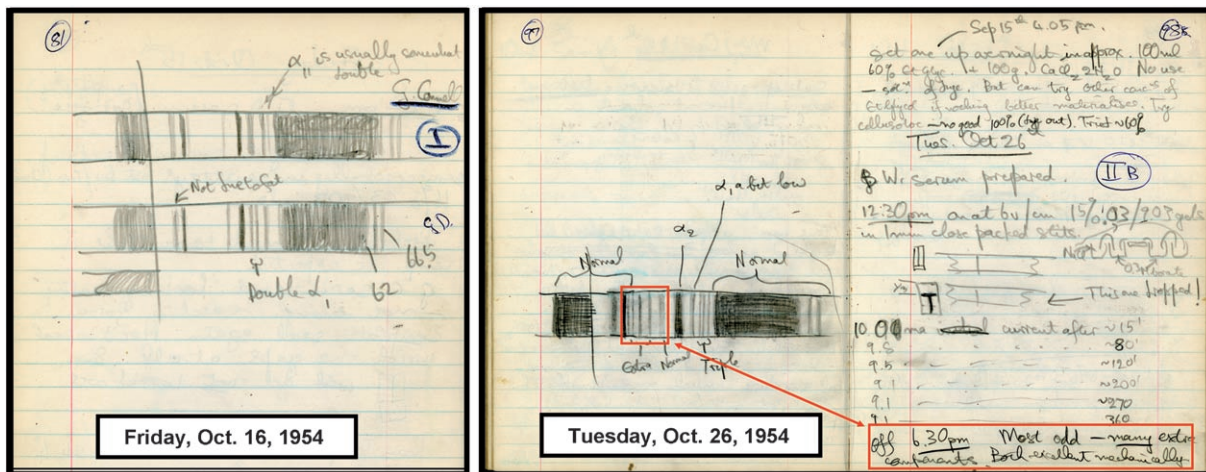 81
α₁ is usually somewhat
double
G. Connel
I
Not
S.D.
66.5
Double α₁
62
Friday, Oct. 16, 1954
97
α₁ a bit low
α₂
Normal
Normal
Extra
Normal
Triple
Tuesday, Oct. 26, 1954
98
Sep 15th 4.05 pm.
Set one up overnight in approx. 100ml
60% + 100g. CaCl₂ 2H₂O No use
of dye. But can try other concs of
if nothing better materialises. Try
cellosolve — no good 100% (dye out). Tried ~60%
Tues. Oct 26
Wr serum prepared.
II B
12.30pm on at 6v/cm 15% .03/.03 gels
in 1mm close packed slits.
This one dropped!
10.0 ma current after ~15'
9.8 ~80'
9.5 ~120'
9.1 ~200'
9.1 ~270
9.1 360
Off 6.30pm Most odd — many extra
components. Both excellent mechanically